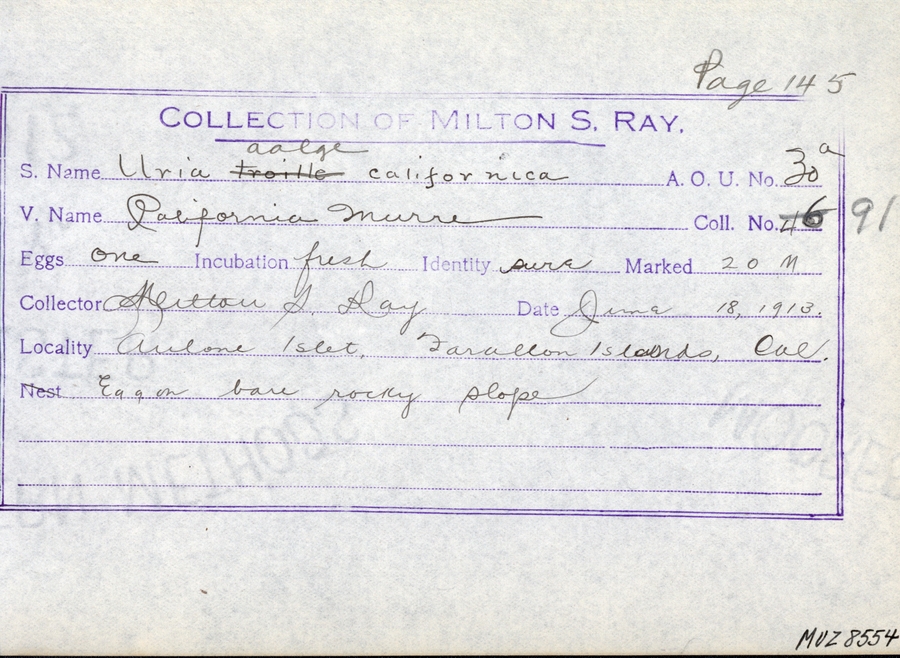 Page 145
COLLECTION OF MILTON S. RAY.
aalge
S. Name Uria troille californica A. O. U. No. 30a
V. Name California Murre Coll. No. 46 91
Eggs one Incubation fresh Identity sure Marked 20 M
Collector Milton S. Ray Date June 18, 1913.
Locality Islet, Farallon Islands, Cal.
Nest Egg on bare rocky slope
MVZ 8554